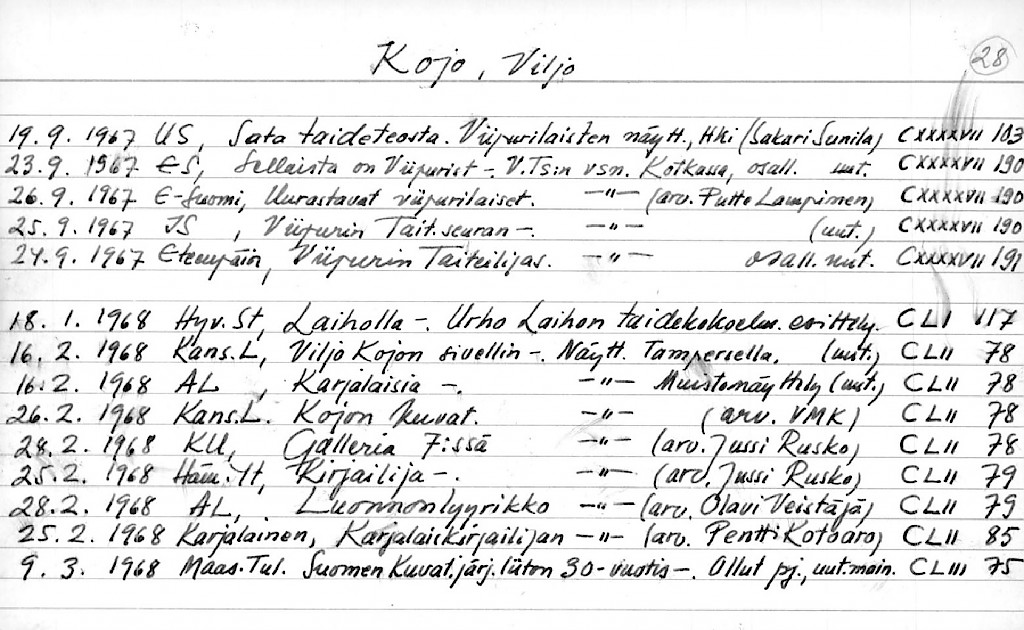 Kojo, Viljo
28
19.9. 1967 US, Sata taideteosta. Viipurilaisten näytt., Hki (Sakari Sunila) CXXXXVII 183
23.9. 1967 ES, Sellaista on Viipurist -. V.TS:n vsn. Kotkassa, osall. uut. CXXXXVII 190
26.9. 1967 E-Suomi, Uurastavat viipurilaiset. -"- (arv. Putte Lampinen) CXXXXVII 190
25.9. 1967 JS, Viipurin Tait.seuran -. -"- (uut.) CXXXXVII 190
24.9. 1967 Eteenpäin, Viipurin Taiteilijas. -"- osall. uut. CXXXXVII 191
18. 1. 1968 Hyv. St, Laiholla -. Urho Laihon taidekokoelm. esittely. CLI 117
16. 2. 1968 Kans.L, Viljo Kojon sivellin -. Näytt. Tampereella. (uut.) CLII 78
16.2. 1968 AL, Karjalaisia -. -"- Muistonäyttely (uut.) CLII 78
26.2. 1968 Kans.L. Kojon kuvat. -"- (arv. VMK) CLII 78
28.2. 1968 KU, Galleria 7:ssä -"- (arv. Jussi Rusko) CLII 78
25.2. 1968 Häm.Yt, Kirjailija -. -"- (arv. Jussi Rusko) CLII 79
28.2. 1968 AL, Luonnonlyyrikko -"- (arv. Olavi Veistäjä) CLII 79
25.2. 1968 Karjalainen, Karjalaiskirjailijan -"- (arv. Pentti Kotoaro) CLII 85
9. 3. 1968 Maas.Tul. Suomen Kuvat.järj.liiton 30-vuotis -. Ollut pj., uut.main. CLIII 75